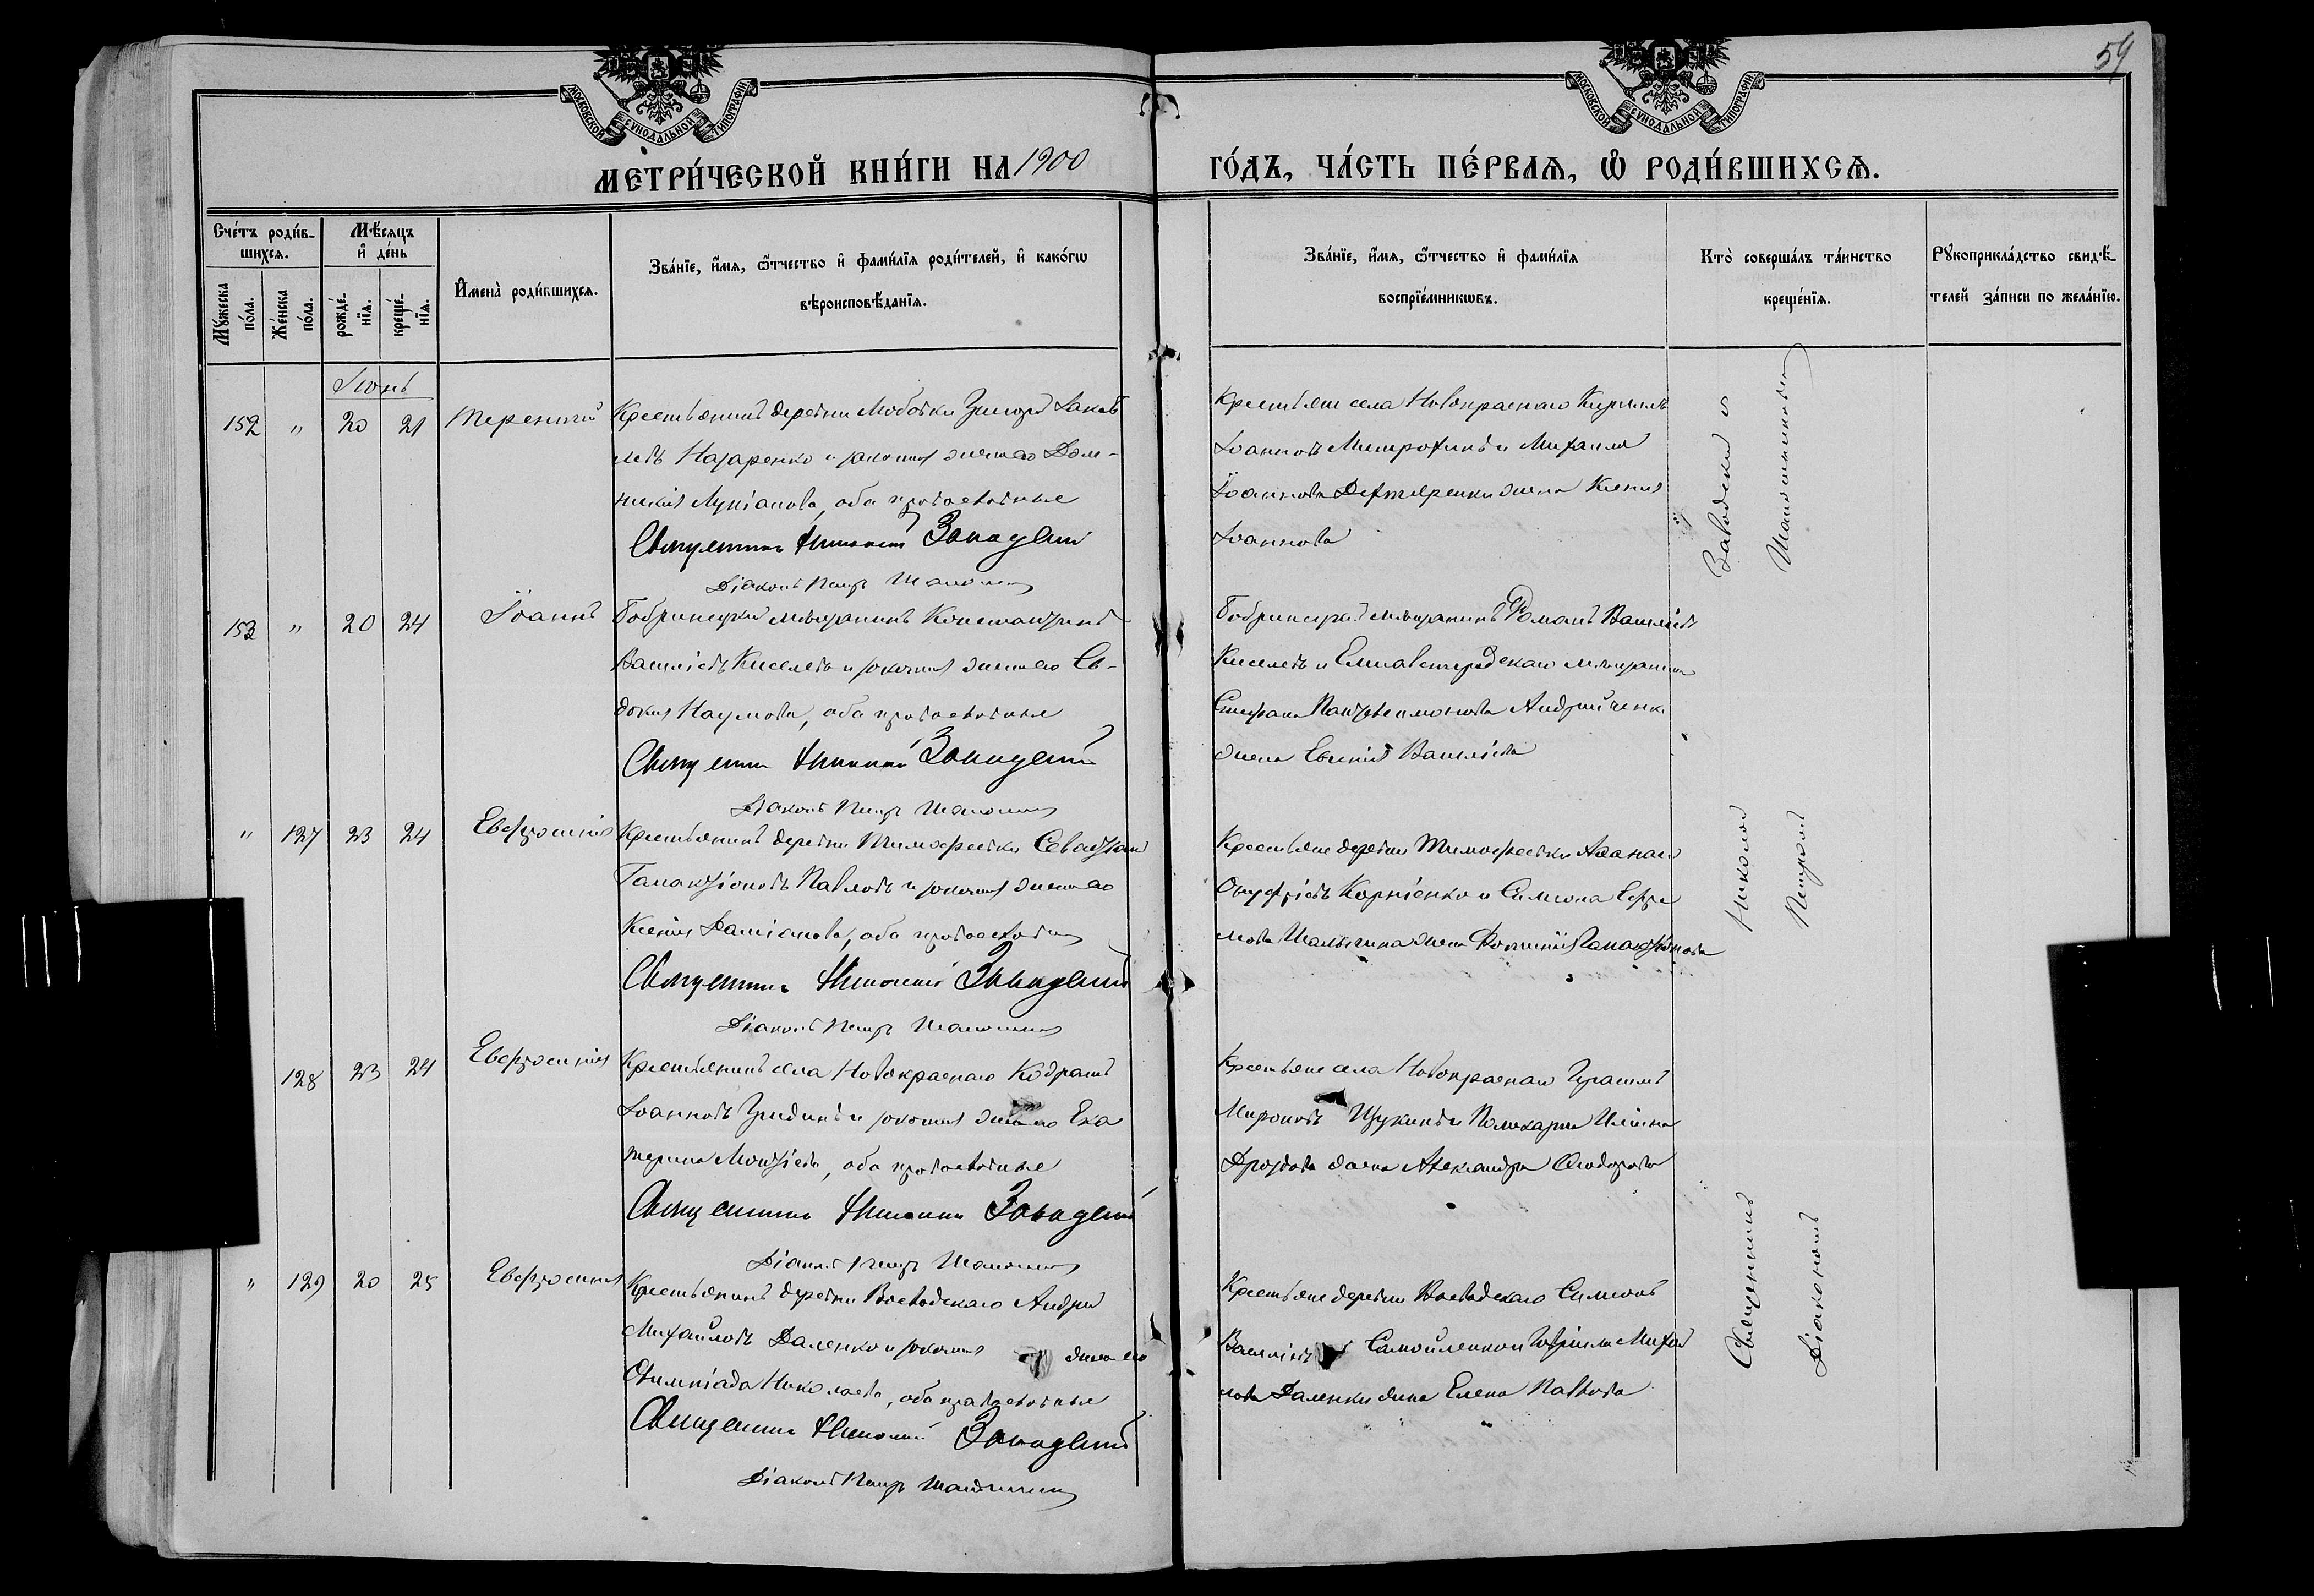 59
МОСКОВСКОЙ СѴНОДАЛЬНОЙ ТИПОГРАФІИ
МОСКОВСКОЙ СѴНОДАЛЬНОЙ ТИПОГРАФІИ
МЕТРИ́ЧЕСКОЙ КНИ́ГИ НА 1900
ГО́ДЪ, ЧА́СТЬ ПЕ́РВАѦ, Ѡ҆ РОДИ́ВШИХСѦ.
Сче́тъ роди́в-
шихсѧ.
Мѣ́сѧцъ
и҆ де́нь
Мꙋ́жеска
по́ла.
Же́нска
по́ла.
рожде́-
нїѧ.
креще́-
нїѧ.
И҆мена̀ роди́вшихсѧ.
Зва́нїе, и҆́мѧ, ѻ҆́тчество и҆ фами́лїѧ роди́телей, и҆ како́гѡ
вѣроисповѣ́данїѧ.
Зва́нїе, и҆́мѧ, ѻ҆́тчество и҆ фами́лїѧ
воспрїе́мникѡвъ.
Кто̀ соверша́лъ та́инство
креще́нїѧ.
Рꙋкоприкла́дство свидѣ́-
телей за́писи по жела́нїю.
Іюнь
152 " 20 21 Терентій
Крестьянинъ деревни Любовки Григорій Іаков
левъ Назаренко и законная жена его Дом-
никія Лукіанова, оба православные
Священникъ Николай Заводскій
Діаконъ Петръ
Крестьяне села Новокраснаго Кириллъ
Іоанновъ Митрофанъ и Михаила
Іоаннова Дехтяренки жена Ксенія
Іоаннова
153 " 20 24 Іоаннъ
Бобринецкій мѣщанинъ Константинъ
Василіевъ Киселевъ и законная жена его Ев-
докія Наумова, оба православные
Священникъ Николай Заводскій
Діаконъ Петръ
Бобринецкій мѣщанинъ Романъ Василіевъ
Киселевъ и Елисаветградскаго мѣщанина
Стефана Пантелеимонова Андрійченка
жена Евгенія Василіева
" 127 23 24 Евфросинія
Крестьянинъ деревни Тимофеевки Севастіанъ
Галактіоновъ Павловъ и законная жена его
Ксенія Даміанова, оба православные
Священникъ Николай Заводскій
Діаконъ Петръ
Крестьяне деревни Тимофеевки Аѳанасій
Онуфріевъ Корніенко и Симеона Ефре
мова жена Галактіонова
128 23 24 Евфросинія
Крестьянинъ села Новокраснаго Кодратъ
Іоанновъ Гридинъ и законная жена его Ека
терина Моѵсіева, оба православные
Священникъ Николай Заводскій
Діаконъ Петръ
Крестьяне села Новокраснаго Герасимъ
Мироновъ Щукинъ и Поликарпа Иліина
Дроздова жена Александра Ѳеодорова
" 129 20 25 Евфросинія
Крестьянинъ деревни Воеводскаго Андрей
Михайловъ Даленко и законная жена его
Олимпіада Николаева, оба православные
Священникъ Николай Заводскій
Діаконъ Петръ
Крестьяне деревни Воеводскаго Симеонъ
Василіевъ Самойленко и Гавріила Михай
лова Даленки жена Елена Павлова
Священникъ Николай Заводскій и
Діакономъ Петромъ